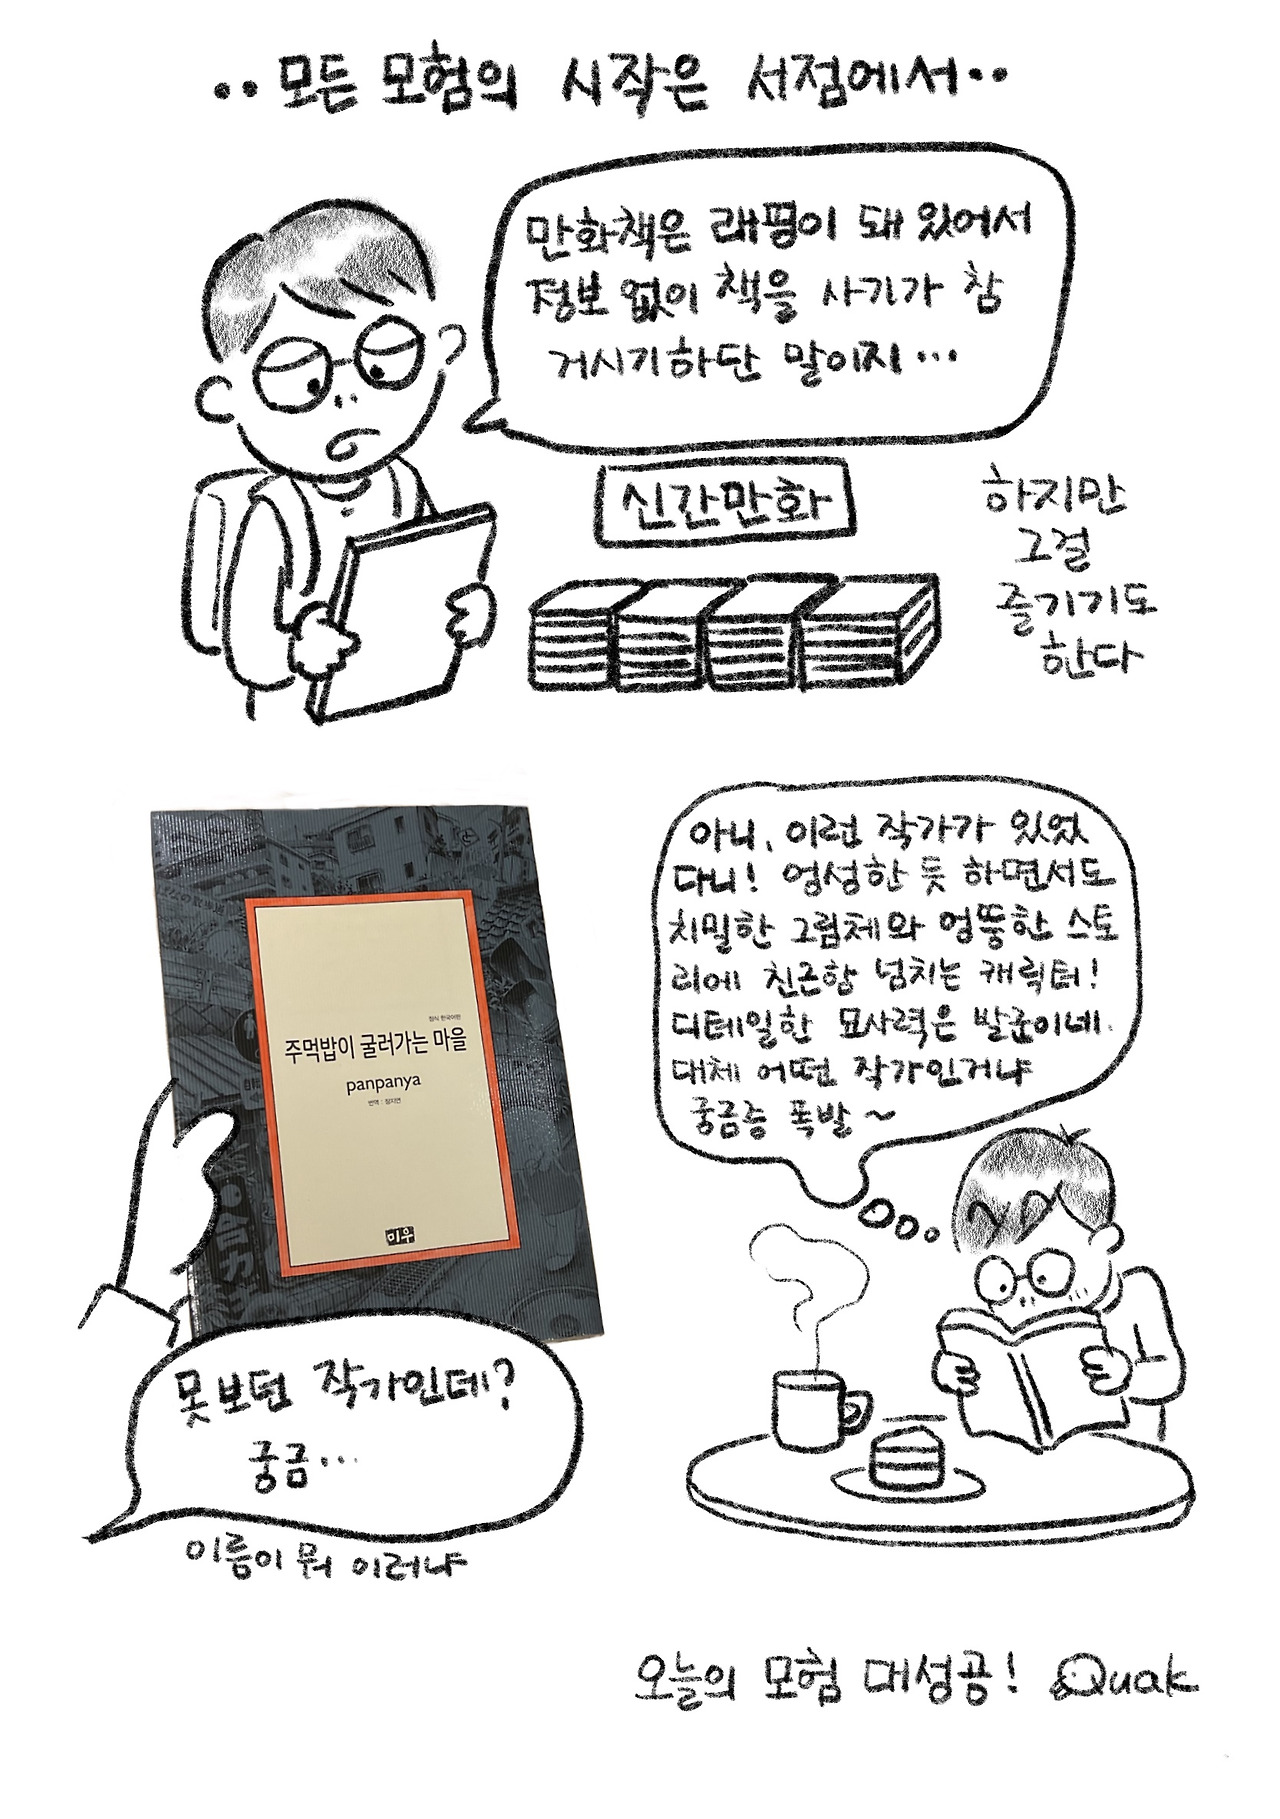 ..모든 모험의 시작은 서점에서..
만화책은 래핑이 돼 있어서
정보 없이 책을 사기가 참
거시기하단 말이지...
신간만화
하지만
그걸
즐기기도
한다
정식 한국어판
주먹밥이 굴러가는 마을
panpanya
번역 : 장지연
미우
못 보던 작가인데?
궁금...
이름이 뭐 이러냐
아니, 이런 작가가 있었
다니! 엉성한 듯 하면서도
치밀한 그림체와 엉뚱한 스토
리에 친근함 넘치는 캐릭터!
디테일한 묘사력은 발군이네.
대체 어떤 작가인거냐
궁금증 폭발~
오늘의 모험 대성공! Quak